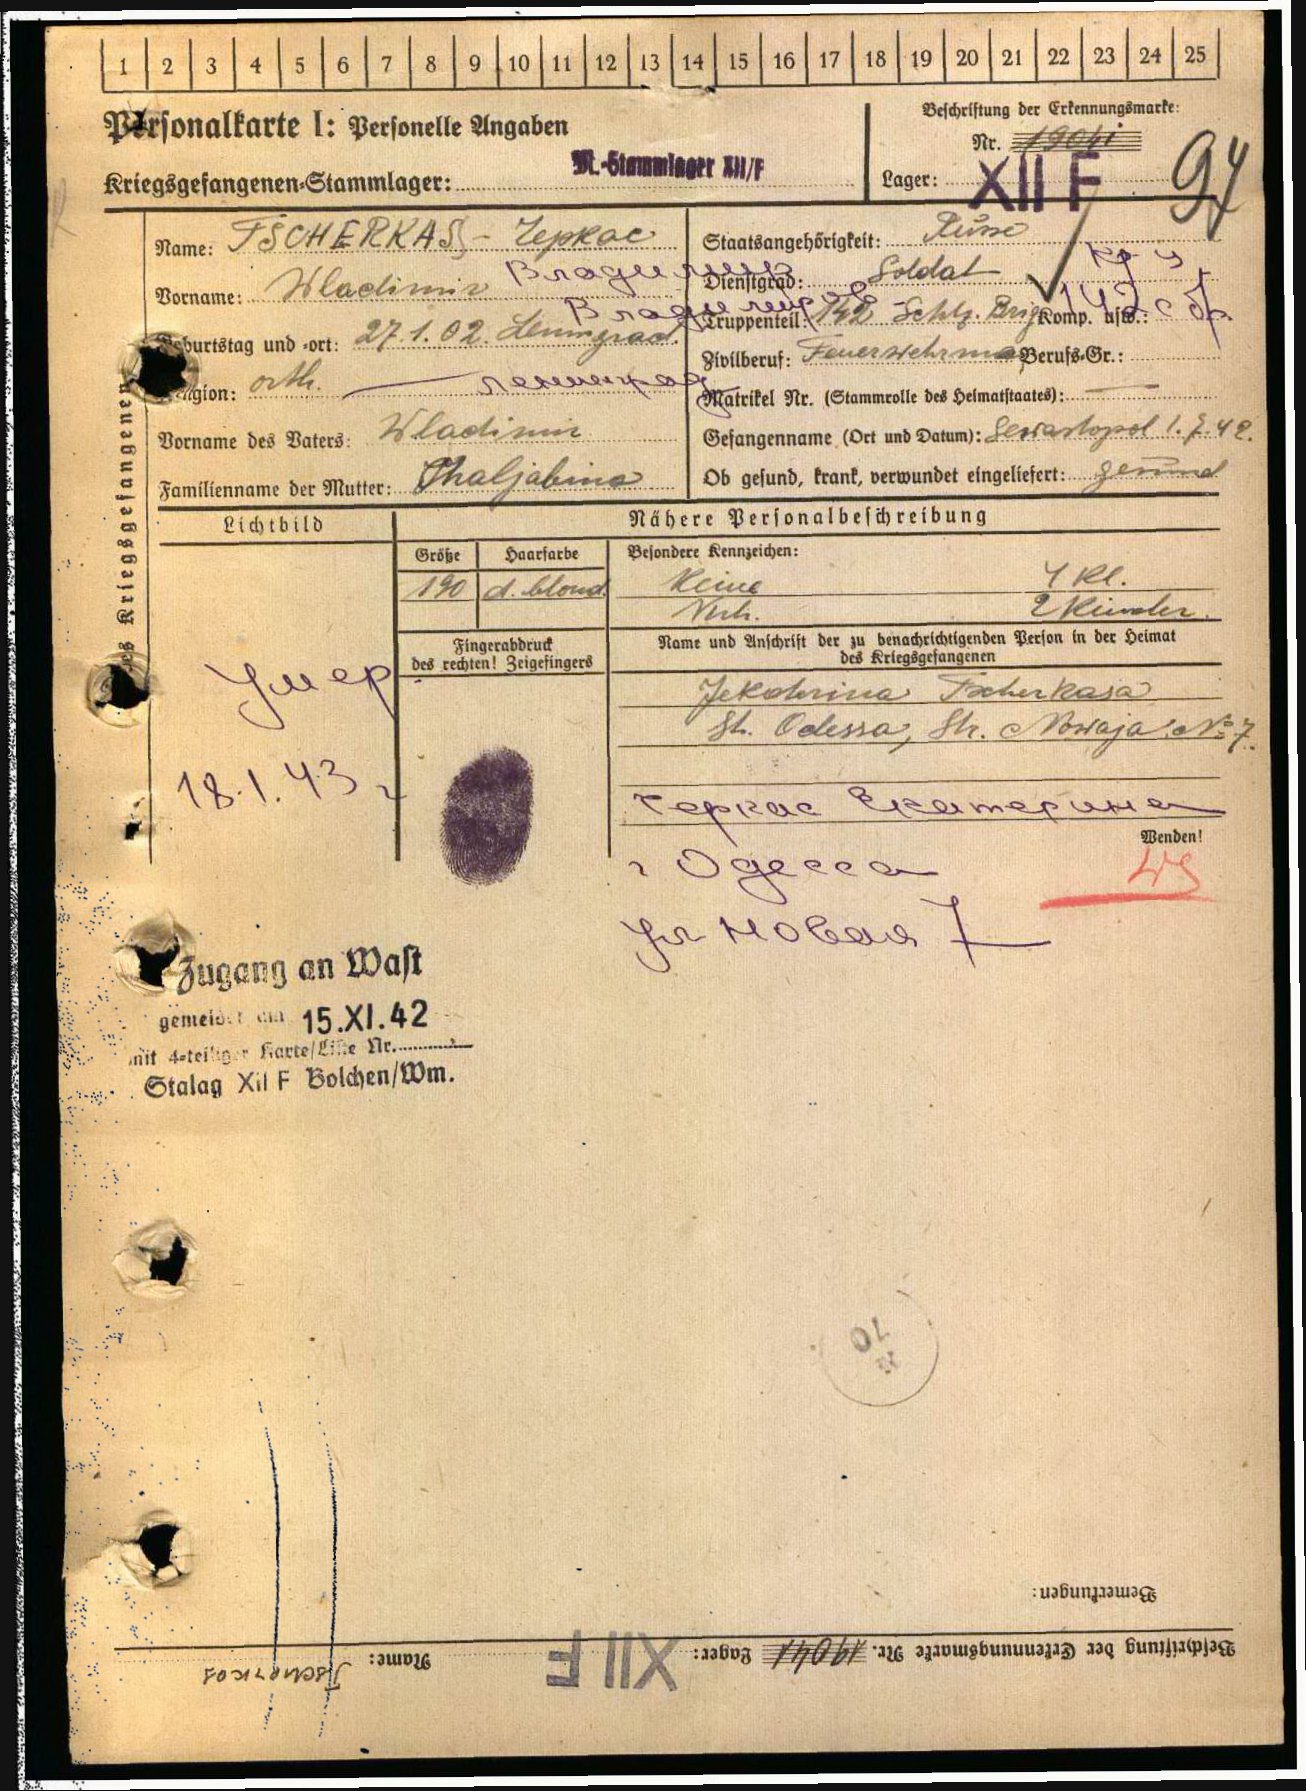 1 2 3 4 5 6 7 8 9 10 11 12 13 14 15 16 17 18 19 20 21 22 23 24 25
Personalkarte I: Personelle Angaben
Beschriftung der Erkennungsmarke:
Nr. 19041
Kriegsgefangenen-Stammlager: M.-Stammlager XII/F
Lager: XII F
94
des Kriegsgefangenen
Name: TSCHERKAS - Черкас
Vorname: Wladimir Владимир
Владимиров
Geburtstag und -ort: 27.1.02. Leningrad
Religion: orth. ленинград
Vorname des Vaters: Wladimir
Familienname der Mutter: Chaljabina
Staatsangehörigkeit: Russe
Dienstgrad: Soldat кр-ц
Truppenteil: 142 Schtz. Brig. Komp. usw.: 142 с б
Zivilberuf: Feuerwehrman Berufs-Gr.:
Matrikel Nr. (Stammrolle des Heimatstaates): —
Gefangenname (Ort und Datum): Sewastopol 1.7.42.
Ob gesund, krank, verwundet eingeliefert: gesund
Lichtbild
Nähere Personalbeschreibung
Größe Haarfarbe
190 d. blond.
Besondere Kennzeichen:
Keine 4 Kl.
Verh. 2 Kinder.
Fingerabdruck
des rechten! Zeigefingers
Name und Anschrift der zu benachrichtigenden Person in der Heimat
des Kriegsgefangenen
Jekaterina Tscherkasa
St. Odessa, Str. Nowaja № 7.
Умер
18.1.43 г
Черкас Екатерина
Wenden!
г Одесса
ул Новая 7
Zugang an Wast
gemeldet am 15.XI.42
mit 4-teiliger Karte/Liste Nr.
Stalag XII F Bolchen/Wm.
10
Bemerkungen:
Beschriftung der Erkennungsmarke Nr. 19041 Lager: XII F Name: Tscherkas